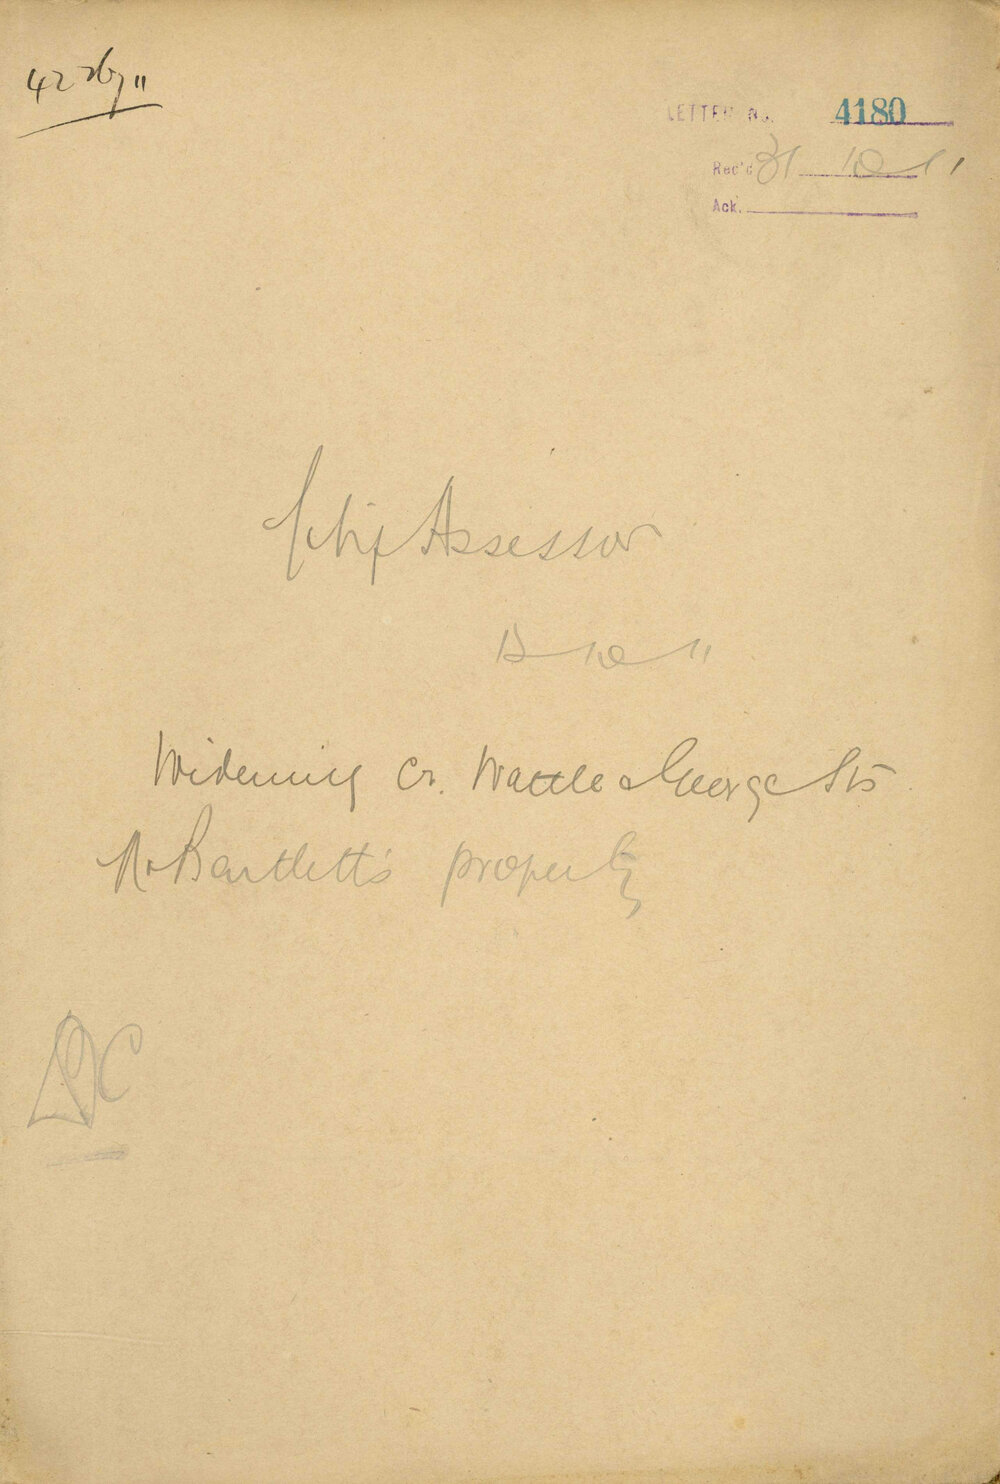 42
LETTER No. 4180
Rec'd 31 10 11
Ack.
Chif Assessor
10 11
Widening Cr. Wattle & George Sts
Mr Bartlett's property